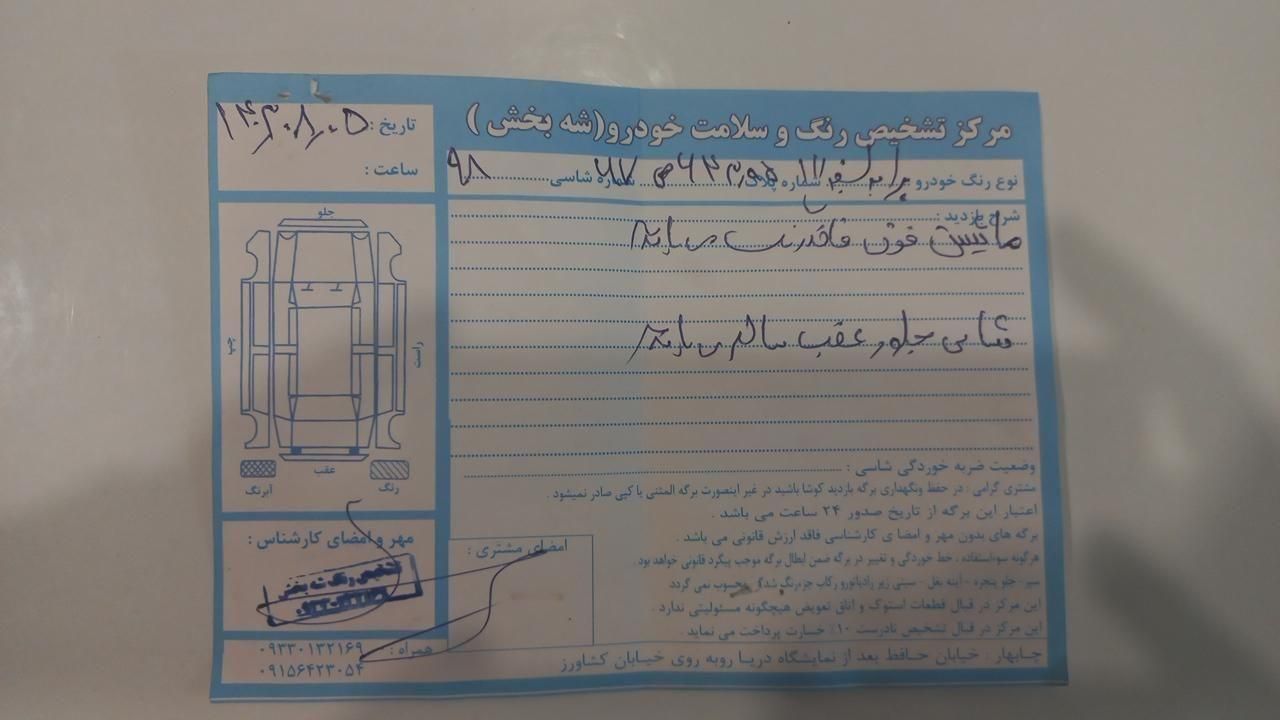 مرکز تشخیص رنگ و سلامت خودرو(شه بخش )
تاریخ : ۱۴۰۳۰۸,۰۵
ساعت :
نوع رنگ خودرو : شماره پلاک : شماره شاسی : ۹۸
شرح بازدید :
ماشین فوق فاقد رنگ می باشد
شاسی جلو و عقب سالم می باشد
جلو
چپ
راست
عقب
آبرنگ
رنگ
وضعیت ضربه خوردگی شاسی :
مشتری گرامی : در حفظ ونگهداری برگه بازدید کوشا باشید در غیر اینصورت برگه المثنی یا کپی صادر نمیشود .
اعتبار این برگه از تاریخ صدور ۲۴ ساعت می باشد .
برگه های بدون مهر و امضا ی کارشناسی فاقد ارزش قانونی می باشد .
هرگونه سوءاستفاده : خط خوردگی و تغییر در برگه ضمن ابطال برگه موجب پیگرد قانونی خواهد بود .
سپر - جلو پنجره - آینه بغل - سینی زیر رادیاتورو رکاب جزءرنگ شدگی محسوب نمی گردد
این مرکز در قبال قطعات استوک و اتاق تعویض هیچگونه مسئولیتی ندارد .
این مرکز در قبال تشخیص نادرست ۱۰٪ خسارت پرداخت می نماید .
مهر و امضای کارشناس :
تشخیص رنگ شه بخش
امضای مشتری :
همراه : ۰۹۳۳۰۱۳۲۱۶۹
۰۹۱۵۶۴۲۳۰۵۴
چابهار : خیابان حافظ بعد از نمایشگاه دریا روبه روی خیابان کشاورز